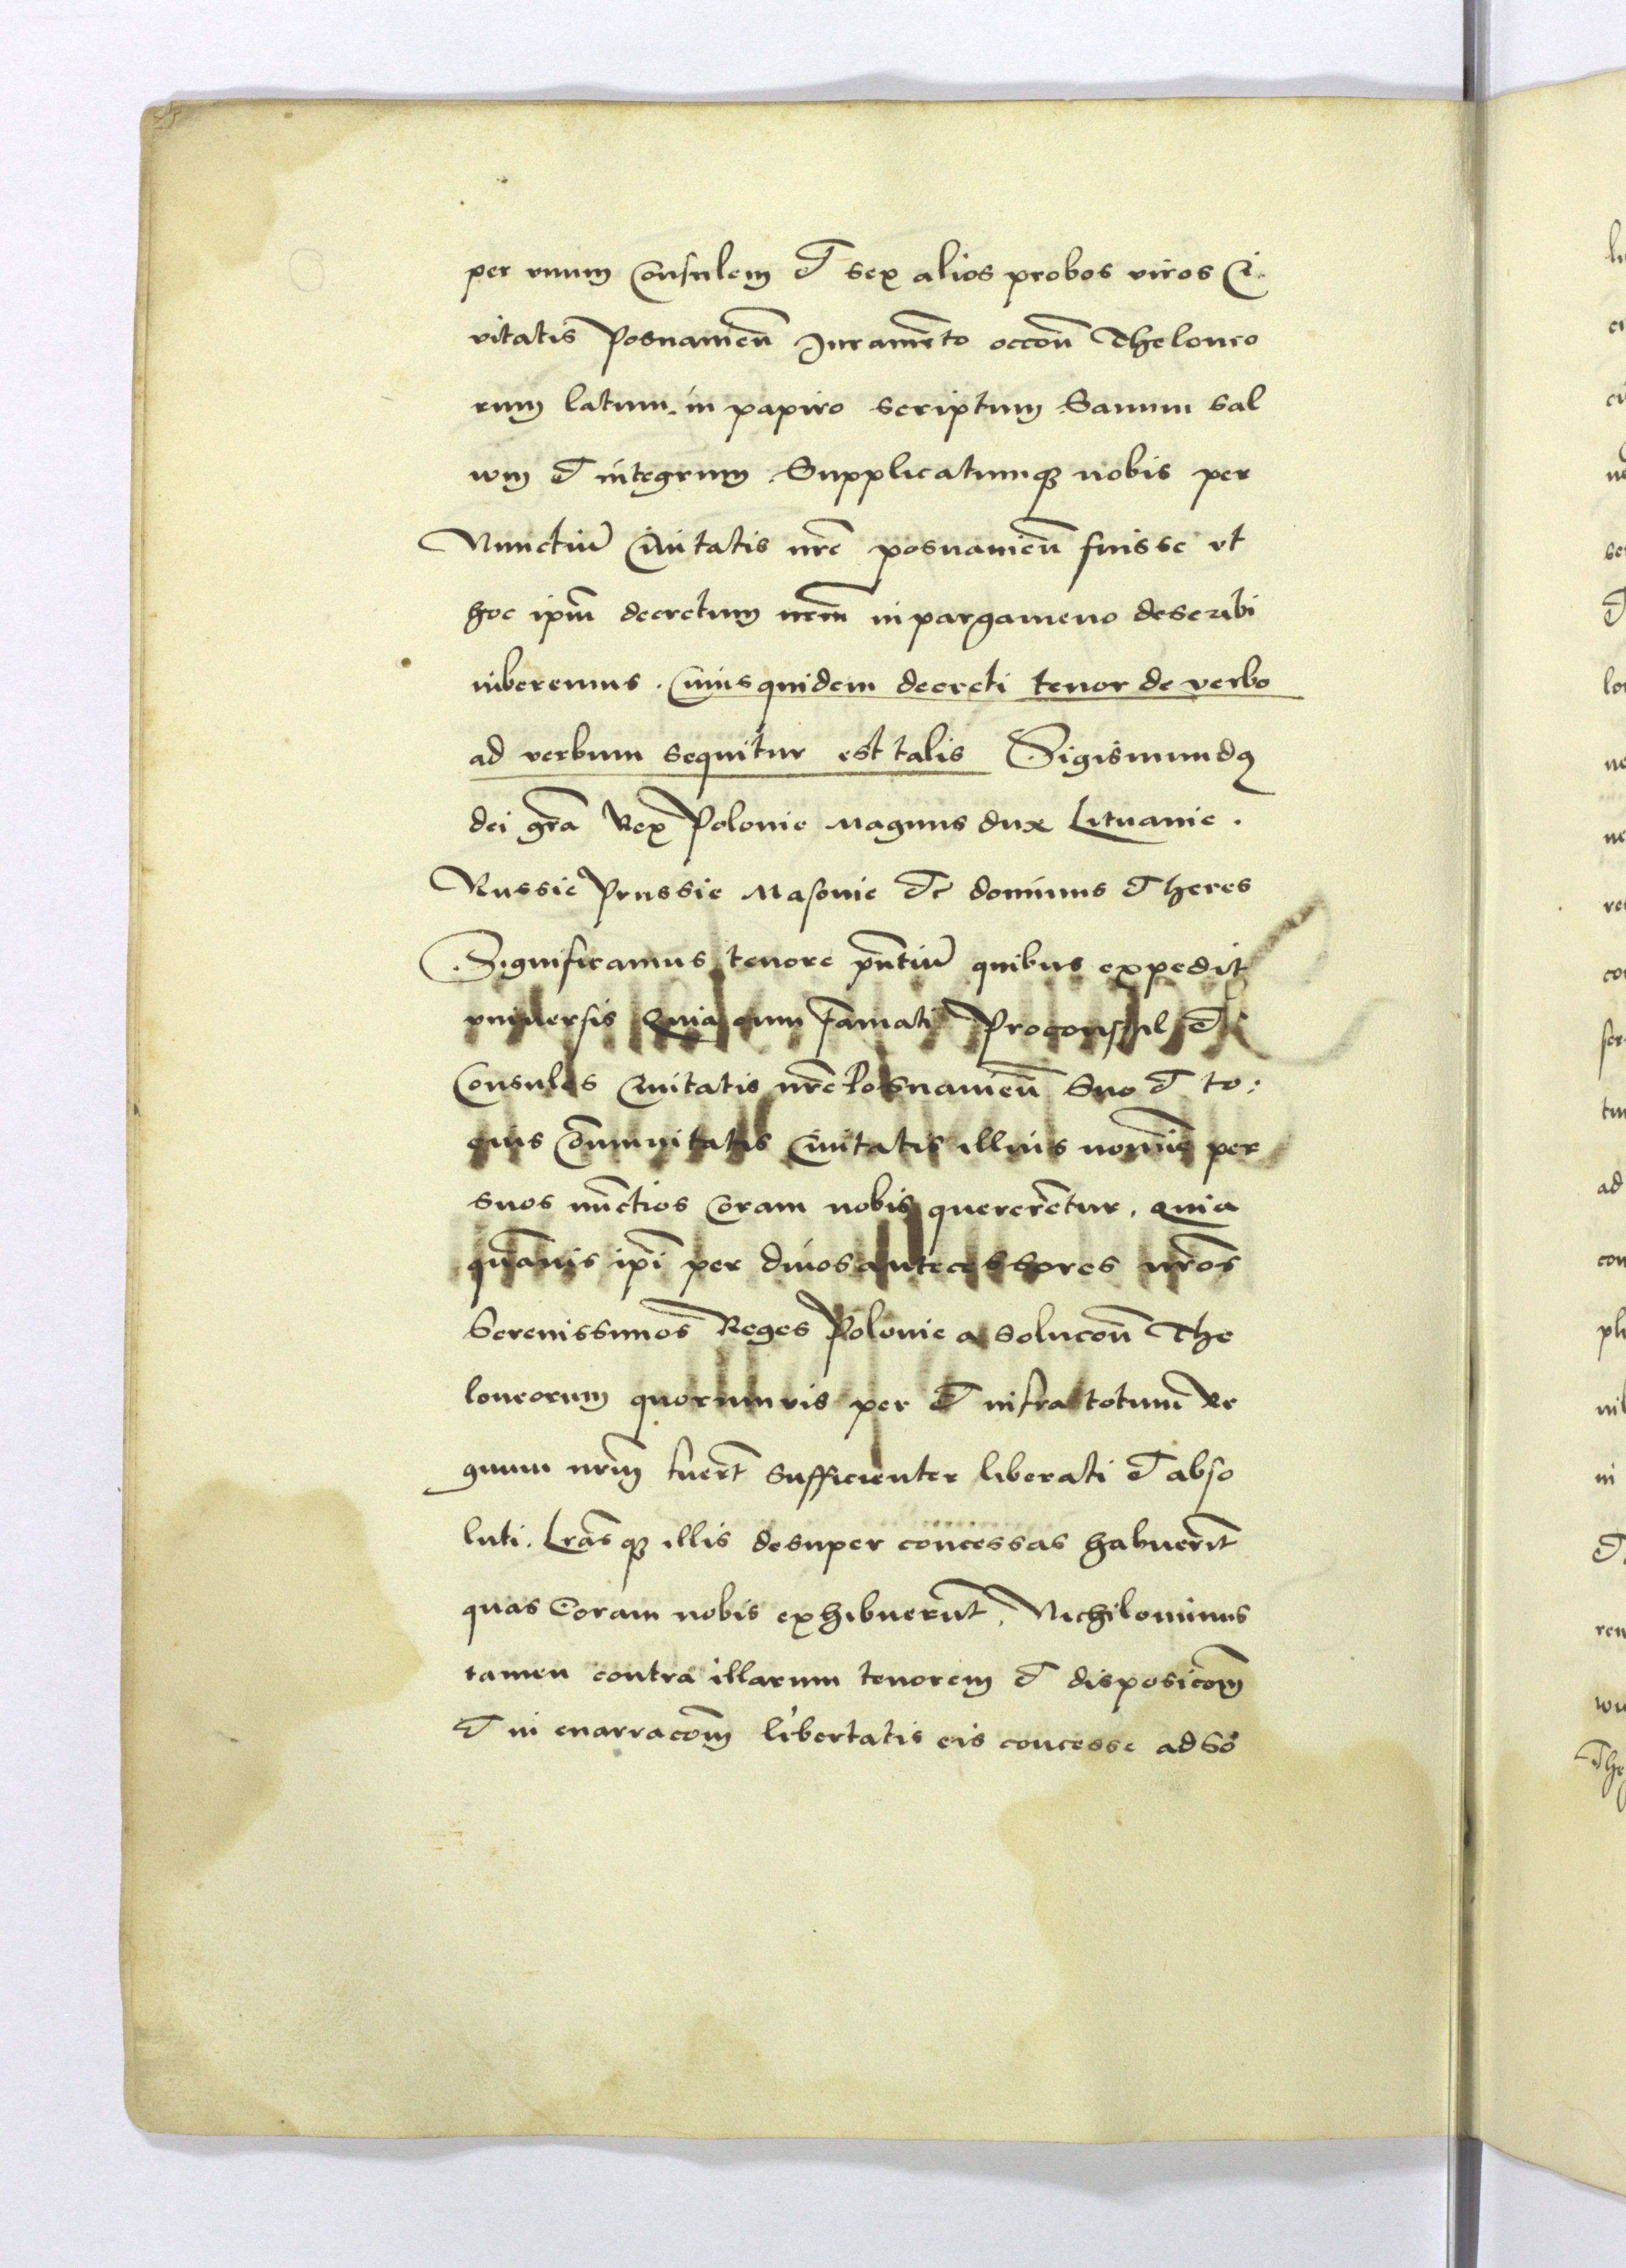 per vnum Consulem et sex alios probos viros Ci
vitatis Posnanien̄ Juramēto occōn Theloneo
rum latum in papiro scriptum Sanum sal
wm et integrum Supplicatumqȝ nobis per
Nunctiū Ciuitatis nr̄e posnanien̄ fuisse vt
hoc ipm̄ decretum nrm̄ in pargameno describi
iuberemus. Cuiusquidem decreti tenor de verbo
ad verbum sequitur est talis Sigismundꝰ
dei gr̄a Rex Polonie Magnus dux Lituanie.
Russie Prussie Masouie etc dominus et heres
Significamus tenore pn̄tiū quibus expedit
vniuersis Quia cum famati Proconsul et
Consules Ciuitatis nr̄e Posnanien̄ Suo et to:
cius Cōmunitatis Ciuitatis illius nomīe per
suos nūctios Coram nobis quererētur. Quia
quāuis ipi̅ per diuos antecessores nr̄os
Serenissimos Reges Polonie a solucōn The
loneorum quorumvis per et infra totum Re
gnum nrm̄ fuerīt Sufficienter liberati et abso
luti. Lrāsqȝ illis desuper concessas habuerīt
quas Coram nobis exhibuerūt. Nichilominus
tamen contra illarum tenorem et disposicōm
et in enarracōm libertatis eis concesse ad So